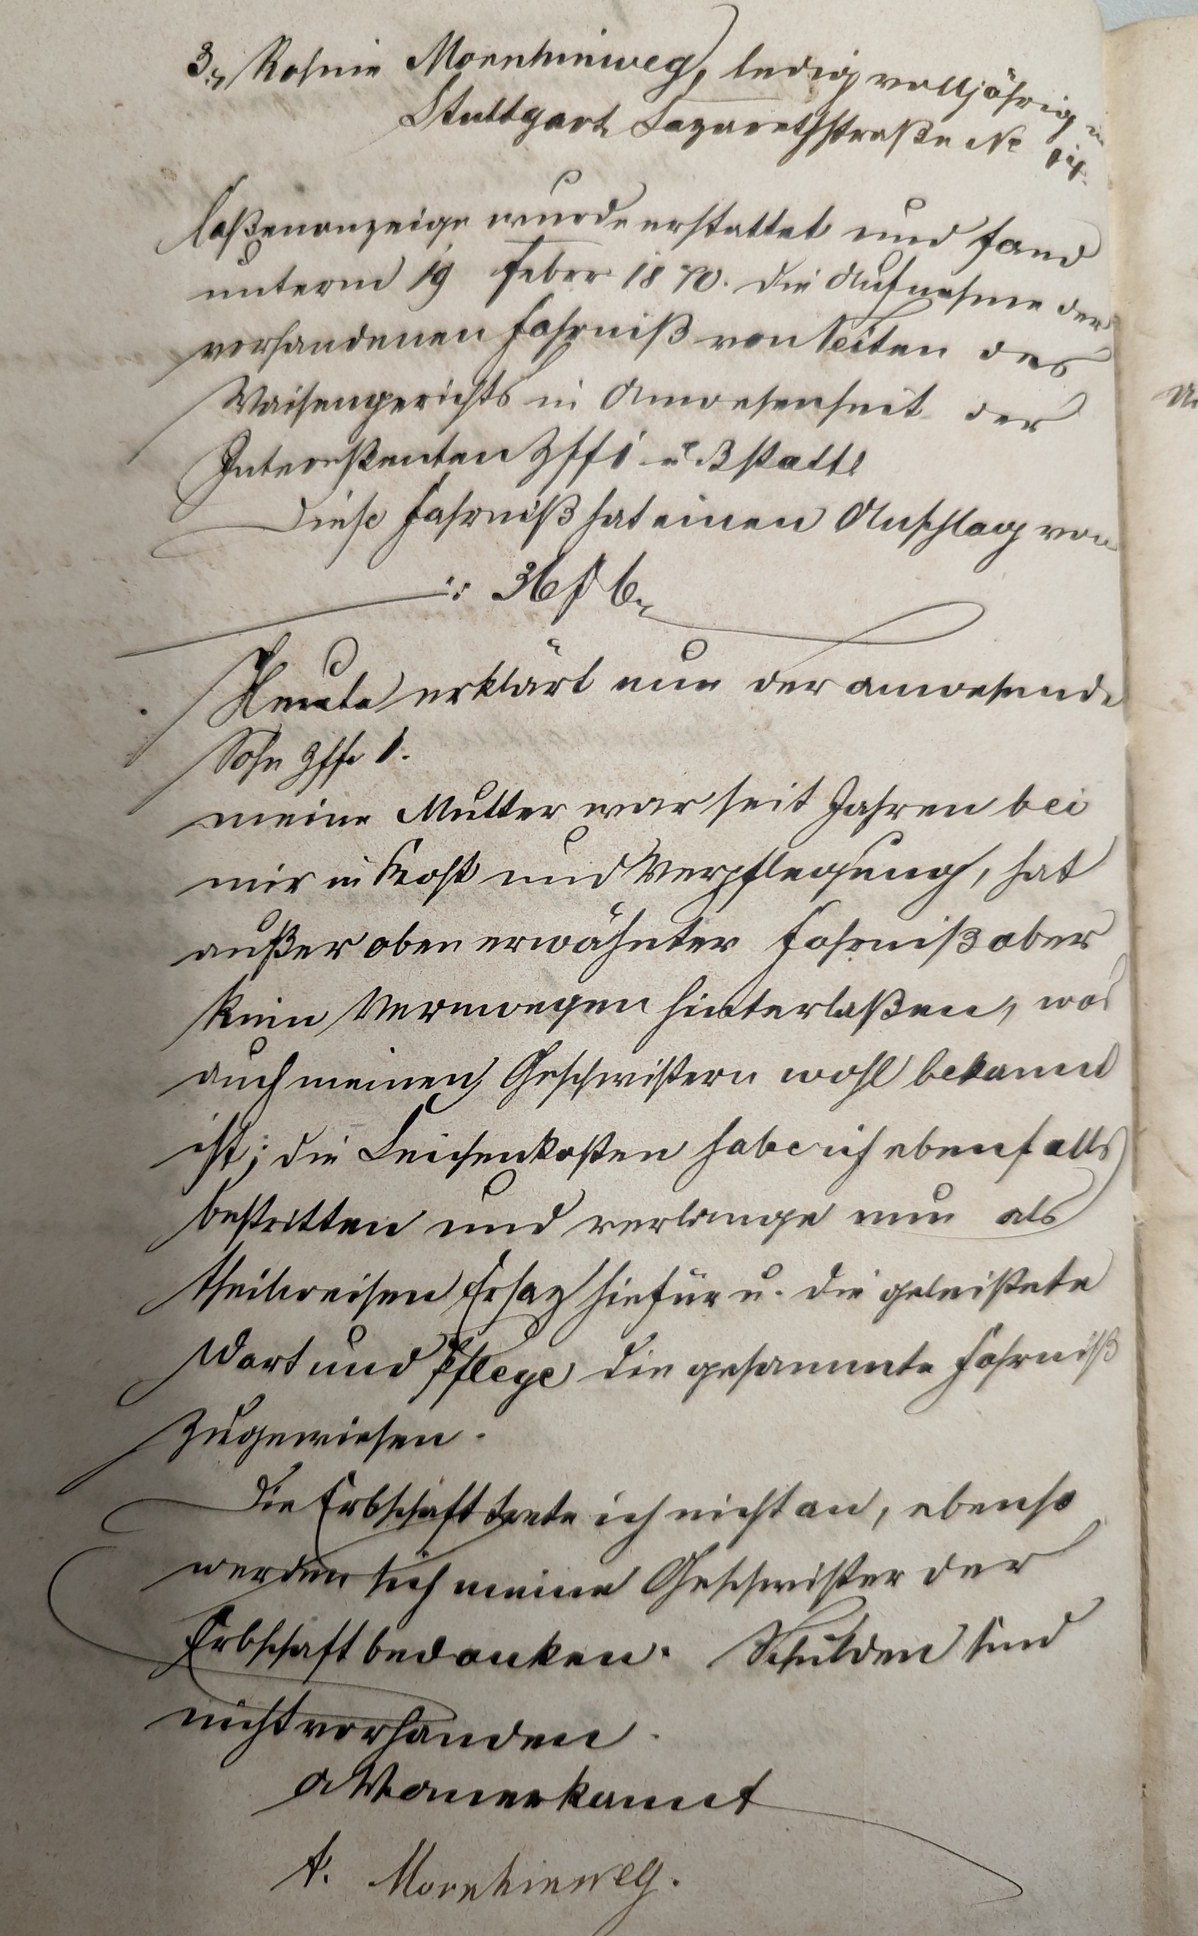 3., Rosine Mornhinweg, ledig volljährig in
Stuttgart, Lazarethstraße No 14.
laßenanzeige wurde erstattet und fand
unterm 19 Febrr 1870. die Aufnahme der
vorhandenen Fahrniß von Seiten des
Waisengerichts in Anwesenheit der
Intereßenten Zffr 1 u. 3 statt
Diese Fahrniß hat einen Anschlag von
36 f 6
Heute erklärt nun der anwesende
Sohn Zffr 1.
meine Mutter war seit Jahren bei
mir in Kost und Verpflegung, hat
außer oben erwähnter Fahrniß aber
kein Vermoegen hinterlaßen, was
auch meinen Geschwistern wohl bekannt
ist; die Leichenkosten habe ich ebenfalls
bestritten und verlange nun als
theilweisen Ersaz hiefür u. die geleistete
Wart und Pflege die gesammte Fahrniß
zugewiesen.
Die Erbschaft trete ich nicht an, ebenso
werden sich meine Geschwister der
Erbschaft bedanken. Schulden sind
nicht vorhanden.
anerkannt
Mornhinweg.